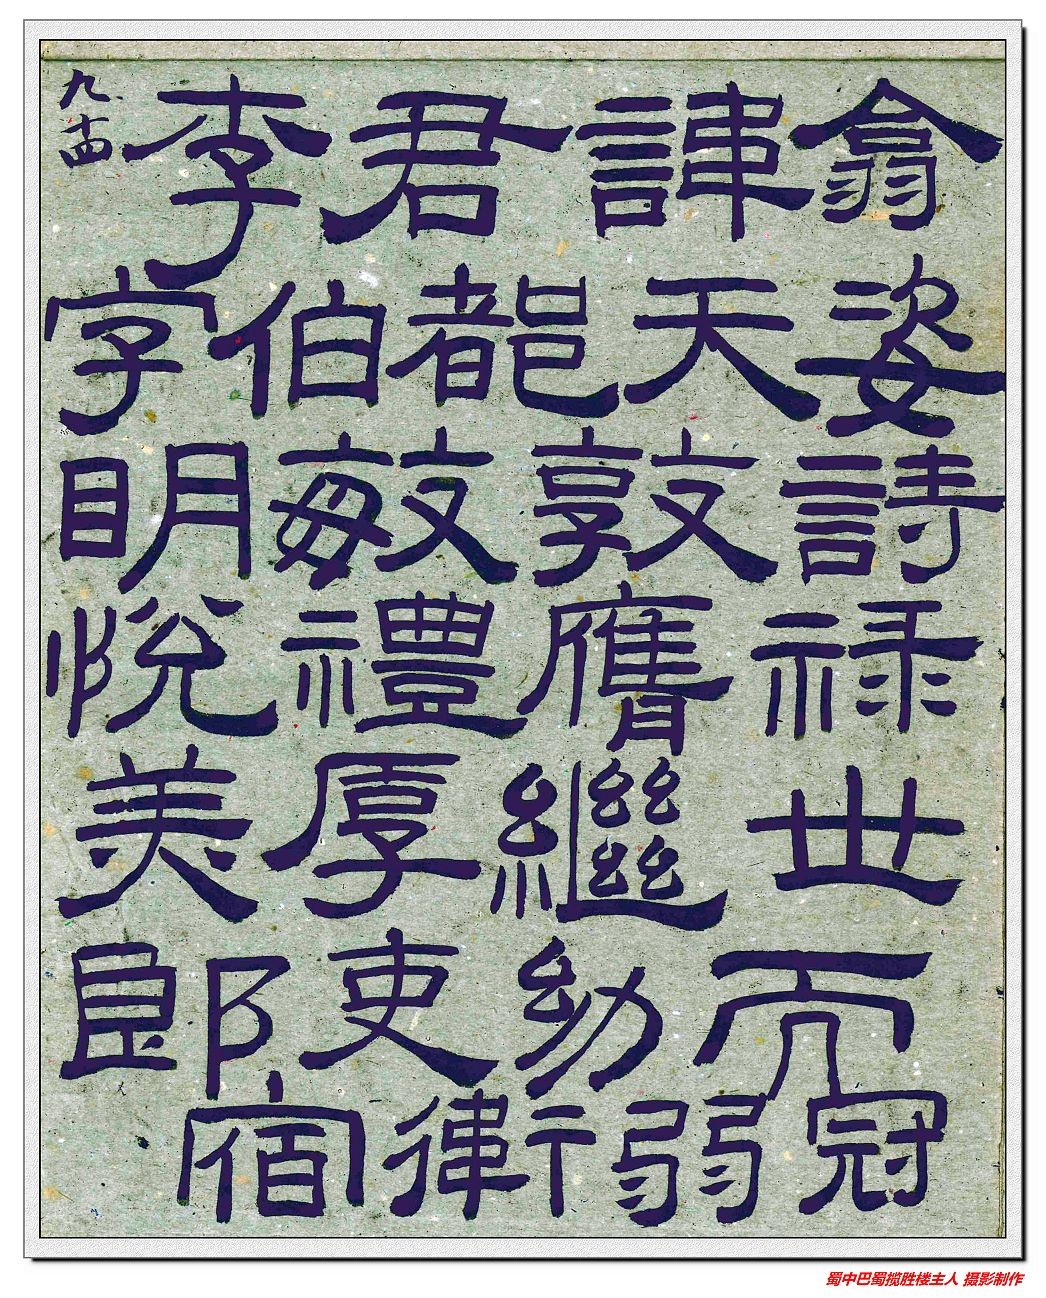 九.十四
李君諱翕
字伯都天姿
明敏敦詩
悅禮膺祿
美厚繼世
郎吏幼而
宿衛弱冠
蜀中巴蜀揽胜楼主人 摄影制作